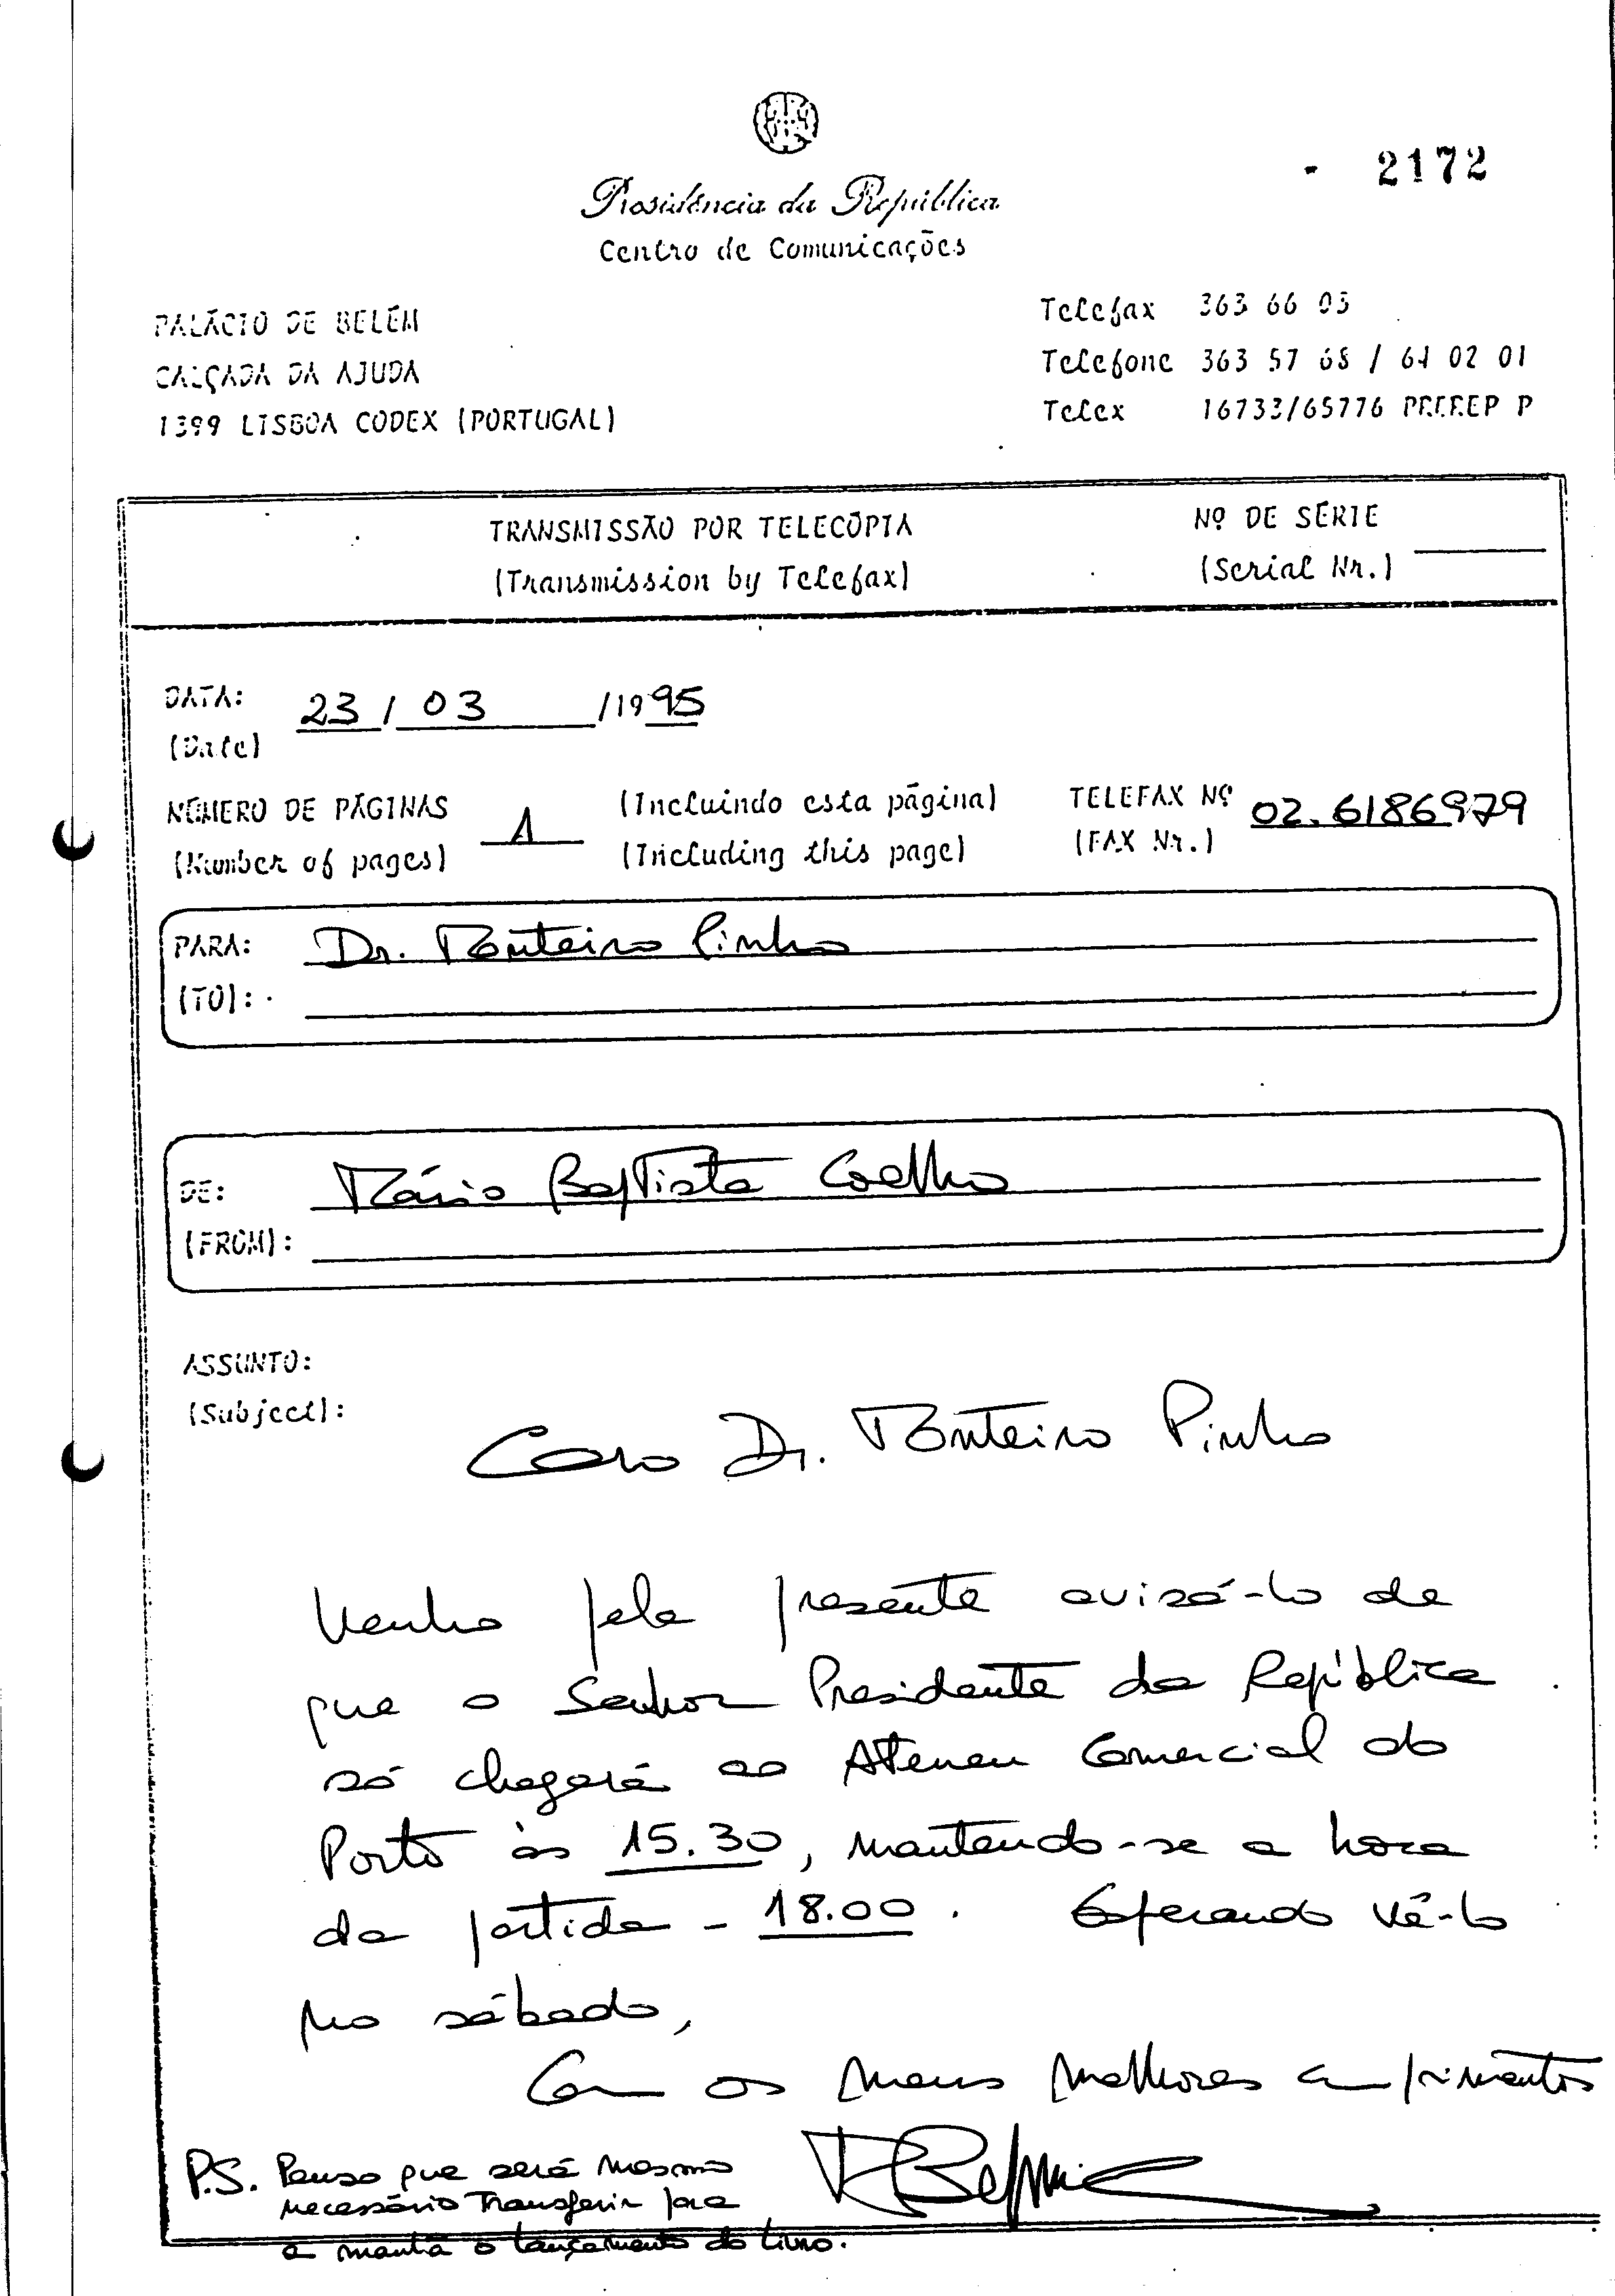 - 2172
Presidência da República
Centro de Comunicações
PALÁCIO DE BELÉM
CALÇADA DA AJUDA
1399 LISBOA CODEX (PORTUGAL)
Telefax 363 66 03
Telefone 363 57 68 / 64 02 01
Telex 16733/65776 PREREP P
TRANSMISSÃO POR TELECÓPIA
(Transmission by Telefax)
Nº DE SÉRIE
(Serial Nr.)
DATA: 23 / 03 /1995
(Date)
NÚMERO DE PÁGINAS 1 (Incluindo esta página)
(Number of pages) (Including this page)
TELEFAX Nº 02.6186979
(FAX Nr.)
PARA: Dr. Monteiro Pinho
(TO):
DE: Mário Baptista Coelho
(FROM):
ASSUNTO:
(Subject):
Caro Dr. Monteiro Pinho
Venho pela presente avisá-lo de
que o Senhor Presidente da República
só chegará ao Ateneu Comercial do
Porto às 15.30, mantendo-se a hora
da partida - 18.00. Esperando vê-lo
no sábado,
Com os meus melhores cumprimentos
P.S. Penso que será mesmo
necessário transferir para
a manhã o lançamento do livro.